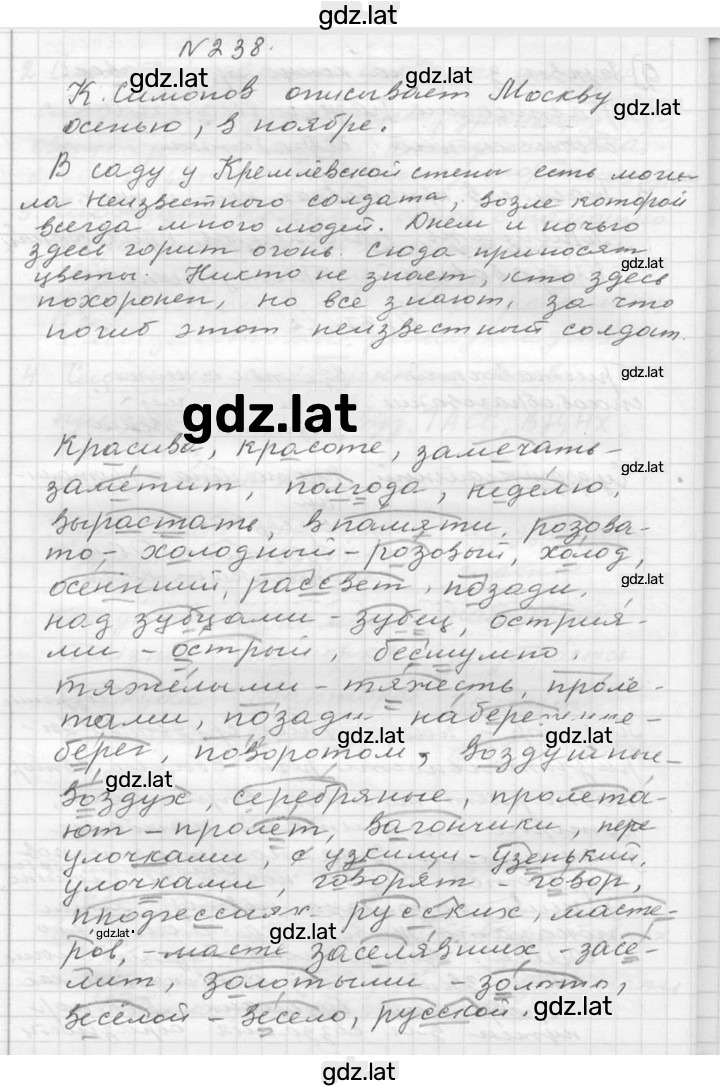 gdz.lat
N 238.
gdz.lat
К. Симонов описывает Москву
gdz.lat
осенью, в ноябре.
В саду у Кремлёвской стены есть моги-
ла Неизвестного солдата, возле которой
всегда много людей. Днём и ночью
здесь горит огонь. Сюда приносят
gdz.lat
цветы. Никто не знает, кто здесь
похоронен, но все знают, за что
погиб этот неизвестный солдат.
gdz.lat
gdz.lat
Красива, красоте, замечать-
gdz.lat
заметит, полгода, неделю,
вырастать, в памяти, розова-
то, - холодный - розовый, холод,
gdz.lat
осенний, рассвет, позади,
над зубцами - зубец, острия-
ми - острый, бесшумно,
тяжёлыми - тяжесть, проле-
тами, позади
gdz.lat
gdz.lat
берег, поворотом, воздушные-
gdz.lat
воздух, серебряные, пролета-
ют - пролёт, вагончики, пере
улочками, с узкими - узенький,
улочками, говорят - говор,
русских, масте-
gdz.lat
gdz.lat
ров, - масте заселявших - засе-
лит, золотыми - золото,
gdz.lat
весёлой - весело, русской.
gdz.lat